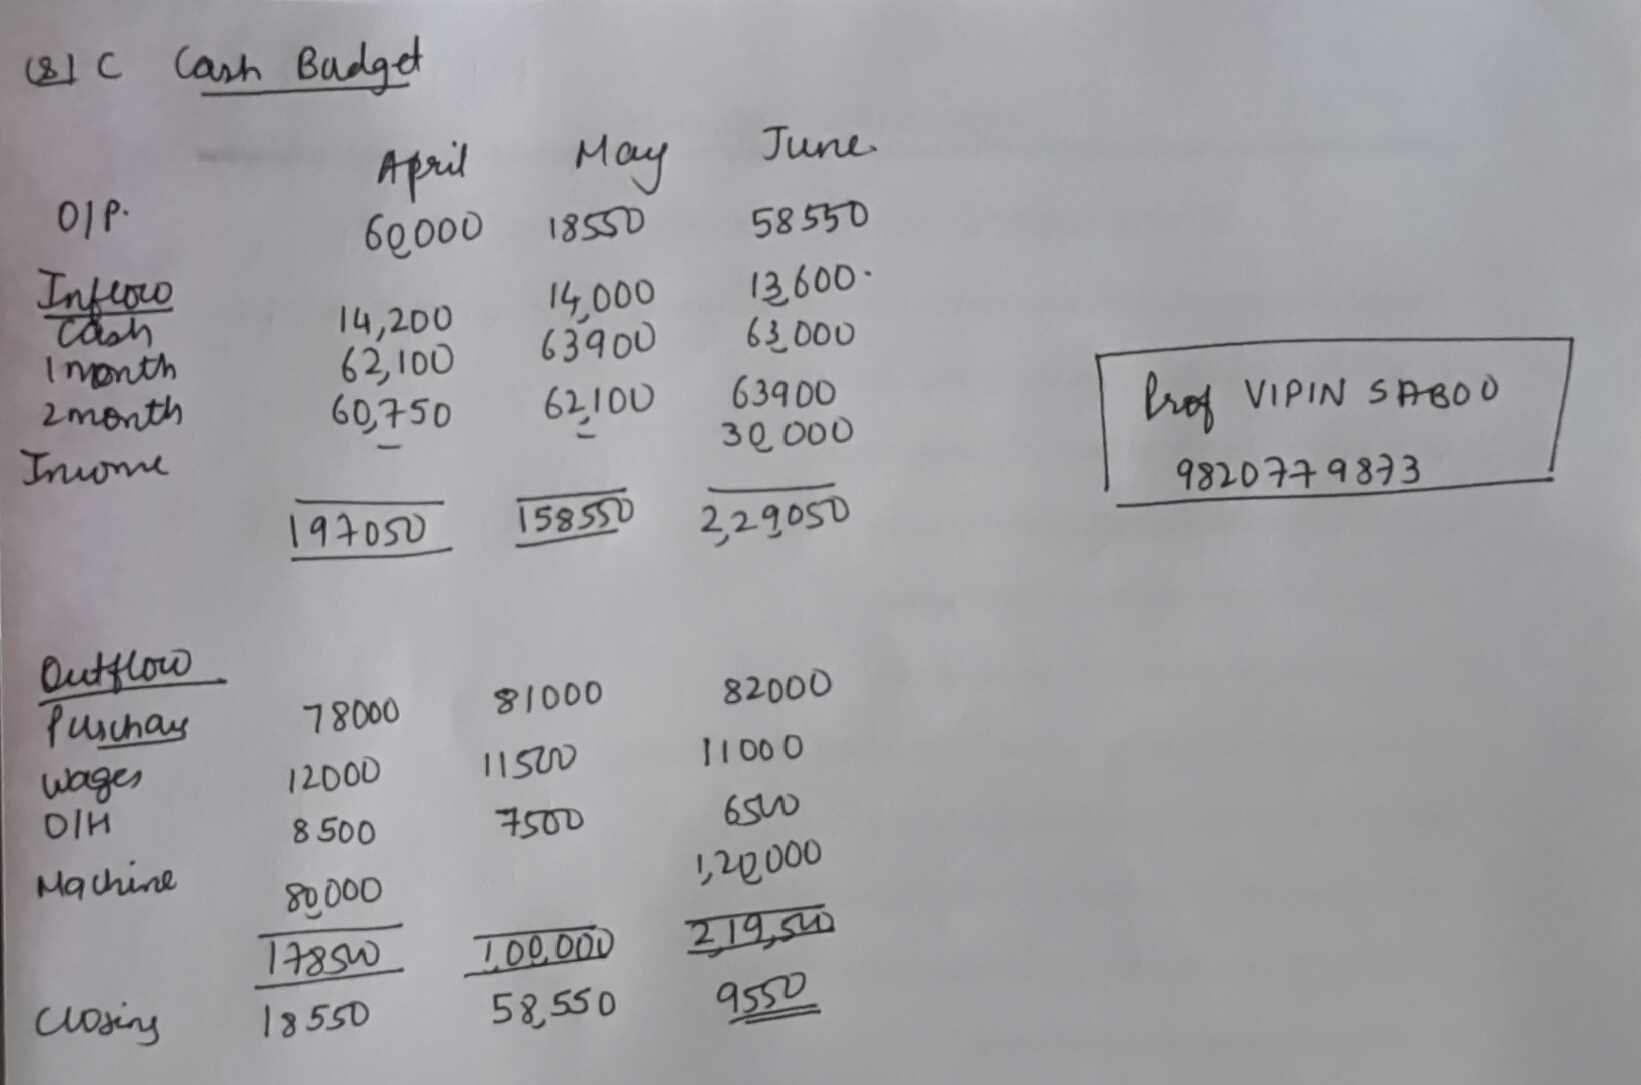 (8) C Cash Budget
April May June.
O/P. 60,000 18550 58550
Inflow
Cash 14,200 14,000 13,600.
1 month 62,100 63900 63,000
2 month 60,750 62,100 63900
Income – – 30,000
197050 158550 2,29,050
Prof VIPIN SABOO
9820779873
Outflow
Purchas 78000 81000 82000
Wages 12000 11500 11000
O/H 8500 7500 6500
Machine 80,000 1,20,000
178500 1,00,000 2,19,500
Closing 18550 58,550 9550